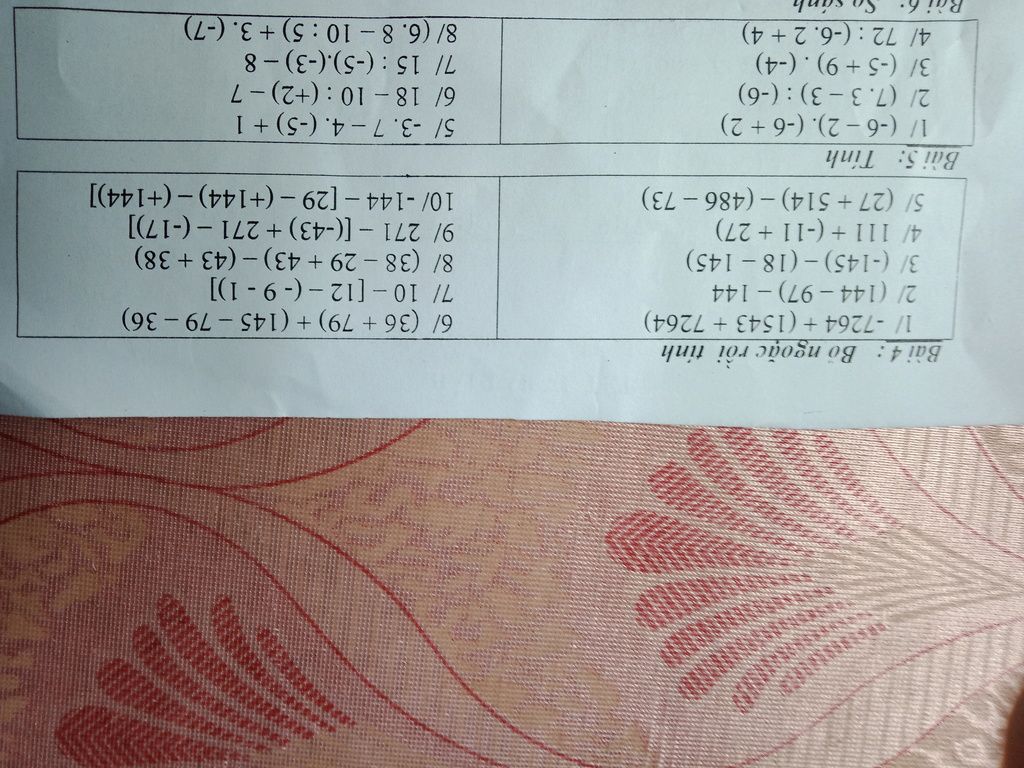 Bài 4 : Bỏ ngoặc rồi tính
1/ -7264 + (1543 + 7264)
2/ (144 – 97) – 144
3/ (-145) – (18 – 145)
4/ 111 + (-11 + 27)
5/ (27 + 514) – (486 – 73)
6/ (36 + 79) + (145 – 79 – 36)
7/ 10 – [12 – (- 9 - 1)]
8/ (38 – 29 + 43) – (43 + 38)
9/ 271 – [(-43) + 271 – (-17)]
10/ -144 – [29 – (+144) – (+144)]
Bài 5: Tính
1/ (-6 – 2). (-6 + 2)
2/ (7. 3 – 3) : (-6)
3/ (-5 + 9) . (-4)
4/ 72 : (-6. 2 + 4)
5/ -3. 7 – 4. (-5) + 1
6/ 18 – 10 : (+2) – 7
7/ 15 : (-5).(-3) – 8
8/ (6. 8 – 10 : 5) + 3. (-7)
Bài 6: So sánh